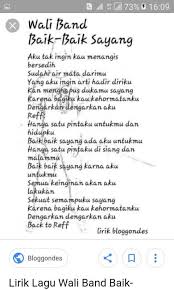 73% 16:09
Wali Band
Baik-Baik Sayang
Aku tak ingin kau menangis
bersedih
Sudahi air mata darimu
Yang aku ingin arti hadir diriku
Kan menghapus dukamu sayang
Karena bagiku kau kehormatanku
Dengarkan dengarkan aku
Reff:
Hanya satu pintaku untukmu dan
hidupku
Baik baik sayang ada aku untukmu
Hanya satu pintaku di siang dan
malammu
Baik baik sayang karna aku
untukmu
Semua keinginan akan aku
lakukan
Sekuat semampuku sayang
Karena bagiku kau kehormatanku
Dengarkan dengarkan aku
Back to Reff
lirik bloggondes
Bloggondes
Lirik Lagu Wali Band Baik-